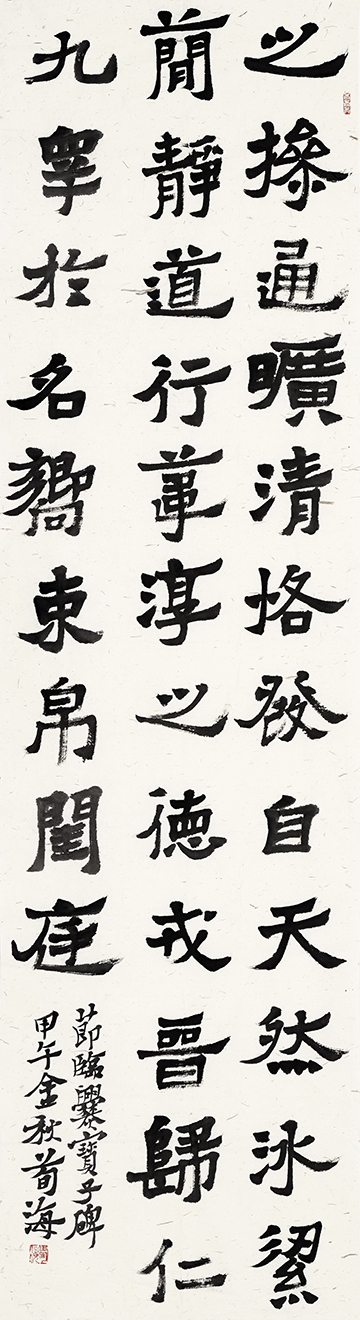 之操通曠清恪發自天然冰絜
簡靜道行葦淳之德戎晉歸仁
九皋於名嚮束帛閨庭
節臨爨寶子碑
甲午金秋荀海